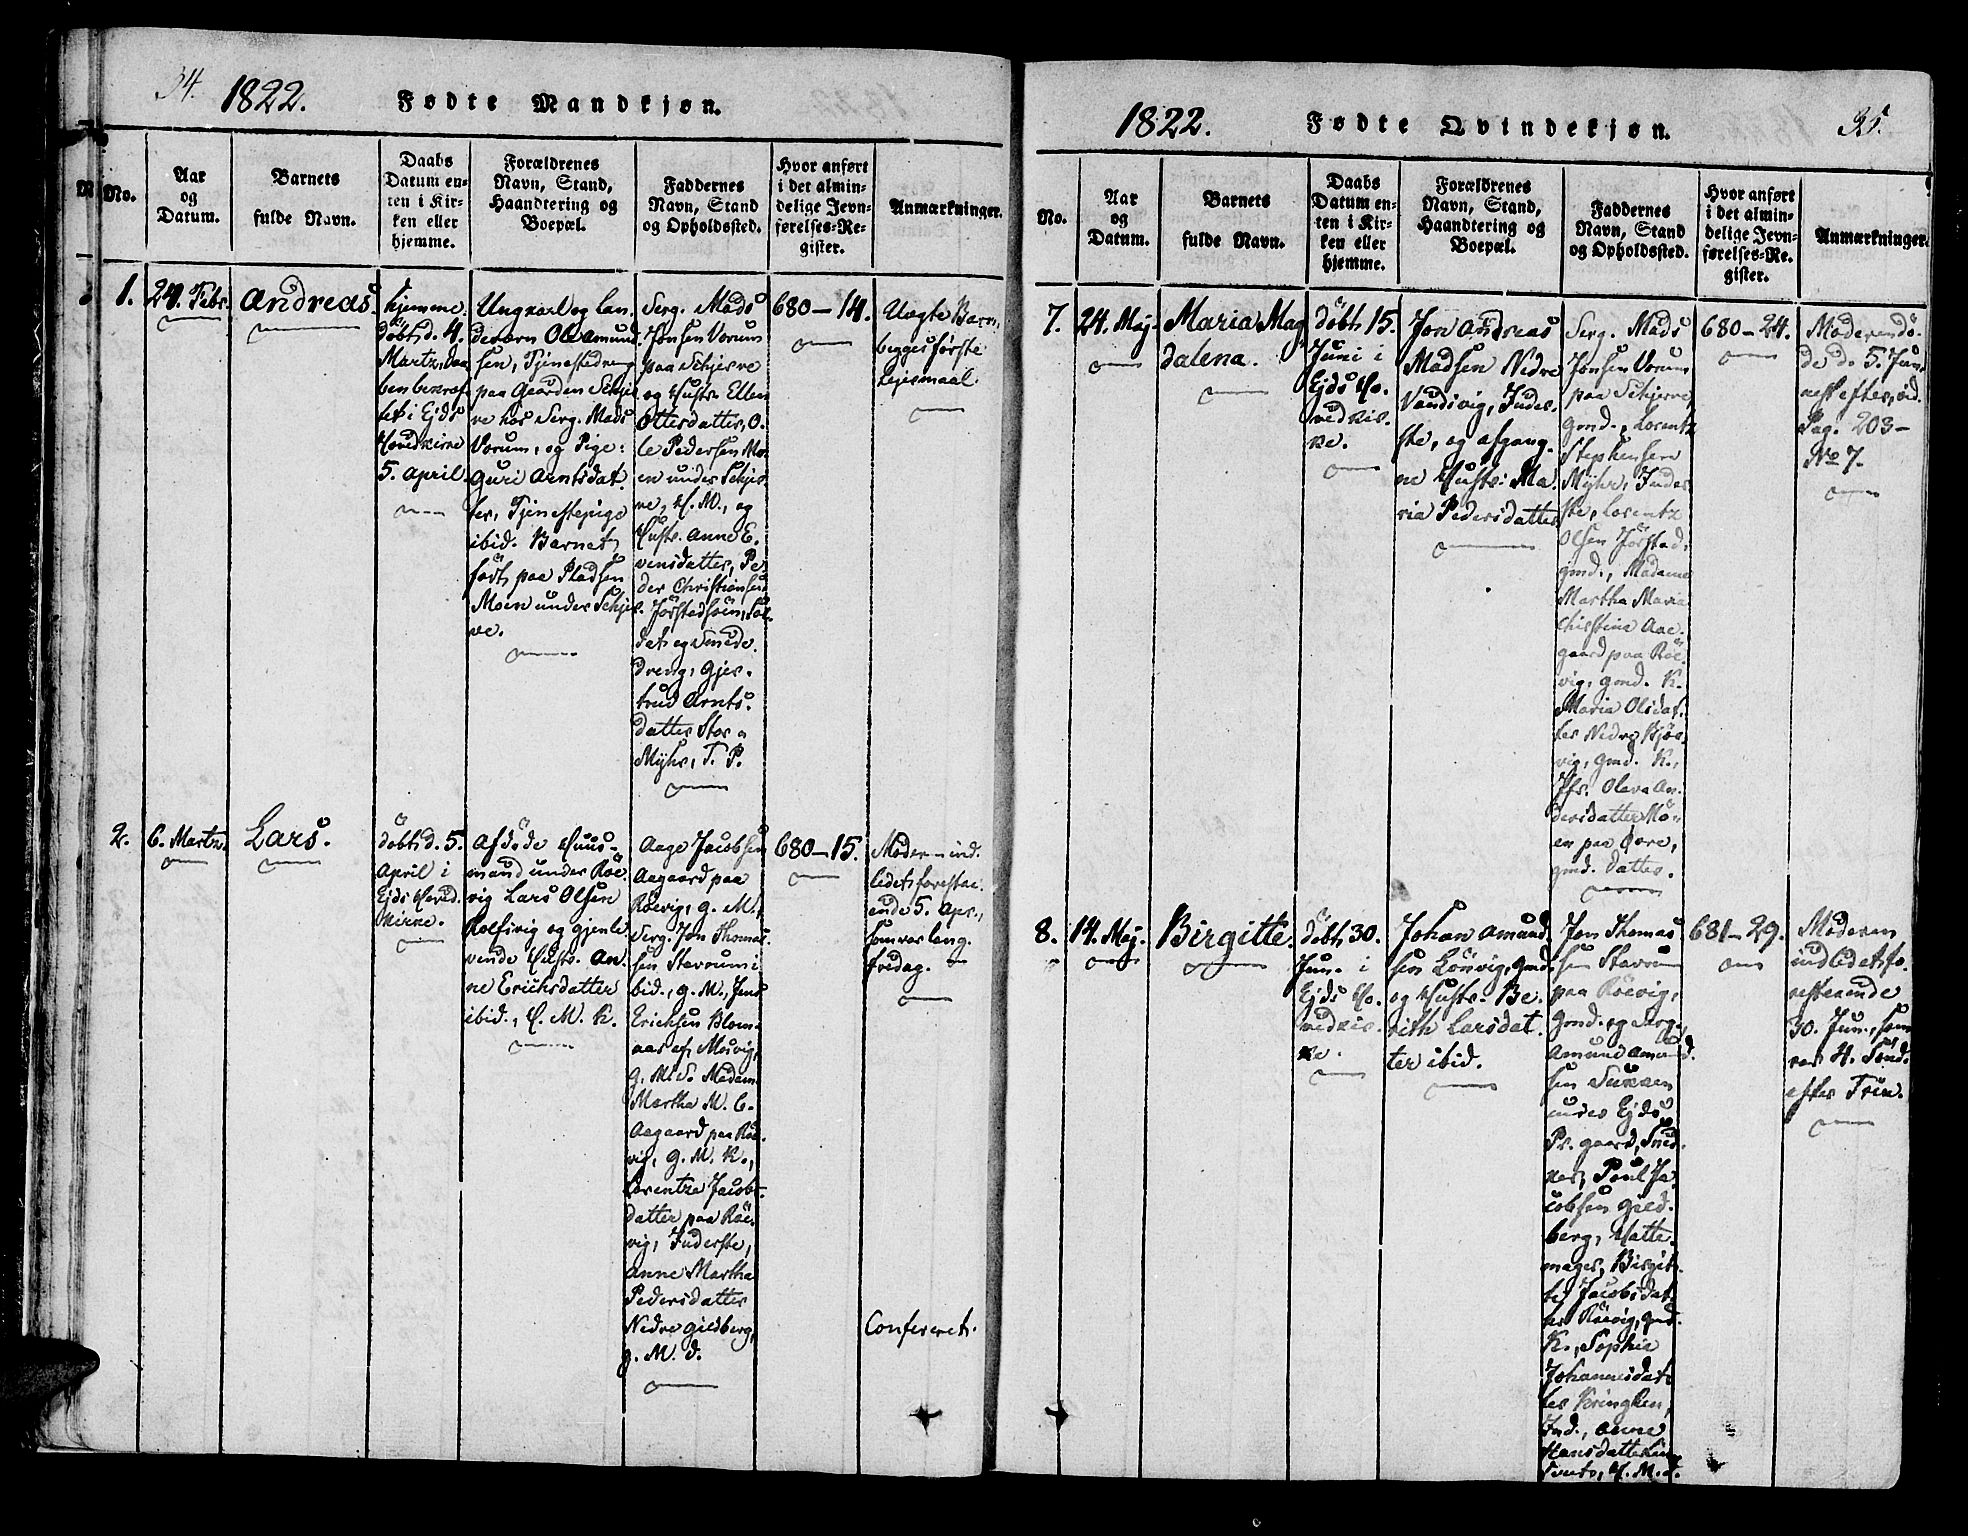 34.
1822.
Fødte Mandkjøn.
No.
Aar
og
Datum.
Barnets
fulde Navn.
Daabs
Datum en-
ten i Kir-
ken eller
hjemme.
Forældrenes
Navn, Stand,
Haandtering og
Boepæl.
Faddernes
Navn, Stand
og Opholdssted.
Hvor anført
i det almin-
delige Jevn-
førelses-Re-
gister.
Anmærkninger.
1.
24. Febr.
Andreas.
hjemme
döbt d. 4.
Martz, Daa
ben bekræf
tet i Ejds
Hovedkirke
5. April.
Ungkarl og lan
deværn Ole Amund
sen, Tjenestedreng
paa Gaarden Schjer
ve hos Serg. Mads
Vorum, og Pige:
Guri Arntsdat
ter, Tjenestepige
ibid. Barnet
født paa Pladsen
Moen under Schjer
ve.
Serg. Mads
Jonsen Vorum
paa Schjerve
og Hustr. Ellen
Ottersdatter, O-
le Pedersen Mo-
en under Schjer
ve, H. M., og
Hustr. Anne E-
vensdatter, Pe-
der Christiansen
Jörstadsöen, Sol-
dat og Smede
dreng, Gjer-
trud Arnts-
datter Stor
Myhr, T. P.
680 - 14.
Uægte Barn,
begges förste
Lejermaal.
2.
6. Martz.
Lars.
döbt d. 5.
April i
Ejds Hoved
kirke.
Afdöde Huus-
mand under Röe
vig Lars Olsen
Rolfsvig og gjenle
vende Hustr. An
ne Erichsdatter
ibid., H. M. K.
Aage Jacobsen
Aagaard paa
Röevig, g. M.,
Serg. Jon Thomas
sen Stavrum i
bid., g. M., Jens
Erichsen Blom-
aas af Mosvig,
g. M. S. Madam
Martha M. C.
Aagaard paa Röe
vig, g. M. K.,
Lorentze Jacobs-
datter paa Röe
vig, Inderste,
Anne Martha
Pedersdatter
Nedre Gildberg,
g. M. d.
680 - 15.
Moder - ind
ledet forestaa-
ende 5. Apr.,
som var lang-
fredag.
Conferert.
1822.
Fødte Qvindekjøn.
35.
No.
Aar
og
Datum.
Barnets
fulde Navn.
Daabs
Datum en-
ten i Kir-
ken eller
hjemme.
Forældrenes
Navn, Stand,
Haandtering og
Boepæl.
Faddernes
Navn, Stand
og Opholdssted.
Hvor anført
i det almin-
delige Jevn-
førelses-Re-
gister.
Anmærkninger.
7.
24. Maj.
Maria Mag
dalena.
döbt 15.
Juni i
Ejds Ho-
vedkir-
ke.
Jon Andreas
Madsen Nedre
Vandvig, Inder-
ste, og afgang-
ne Hustr: Ma-
ria Pedersdatter
Serg. Mads
Jonsen Vorum
paa Schjerve,
gmd., Lorentz
Stephensen
Myhr, Inder
ste, Lorentz
Olsen Jörstad,
gmd., Madame
Martha Maria
Christina Aae-
gaard paa Röe-
vig, gmd. K.
Maria Olsdat-
ter Nedre
vig, gmd. K.,
Pfr. Oleva An-
dersdatter Mö-
en paa
gmd. Datter.
680 - 24.
Moderen dö-
de d. 5. Jun.
næst efter, vid.
Pag. 203 -
No 7.
8.
14. Maj.
Birgitte.
döbt 30.
Jun. i
Ejds Ho-
vedkir-
ke.
Johan Amund
sen Lönvig, gmd.
og Hustr: Be-
rith Larsdat-
ter ibid.
Jon Thomas
sen Stavrum
paa Röevig,
gmd. og Serg.
Amund Amund
sen
under Ejds
Pr. gaard, Snid
ker, Poul Ja-
cobsen Gild-
berg, Hatte-
mager, Birgit-
te Jacobsdat
ter Röevig, gmd.
K., Sophia
Johannesdat
ter Kringlen,
Ind., Anne
Hansdatter
681 - 29.
Moderen
indledet fo-
restaaende
30. Jun., som
var 4. Sönd.
efter Trin.